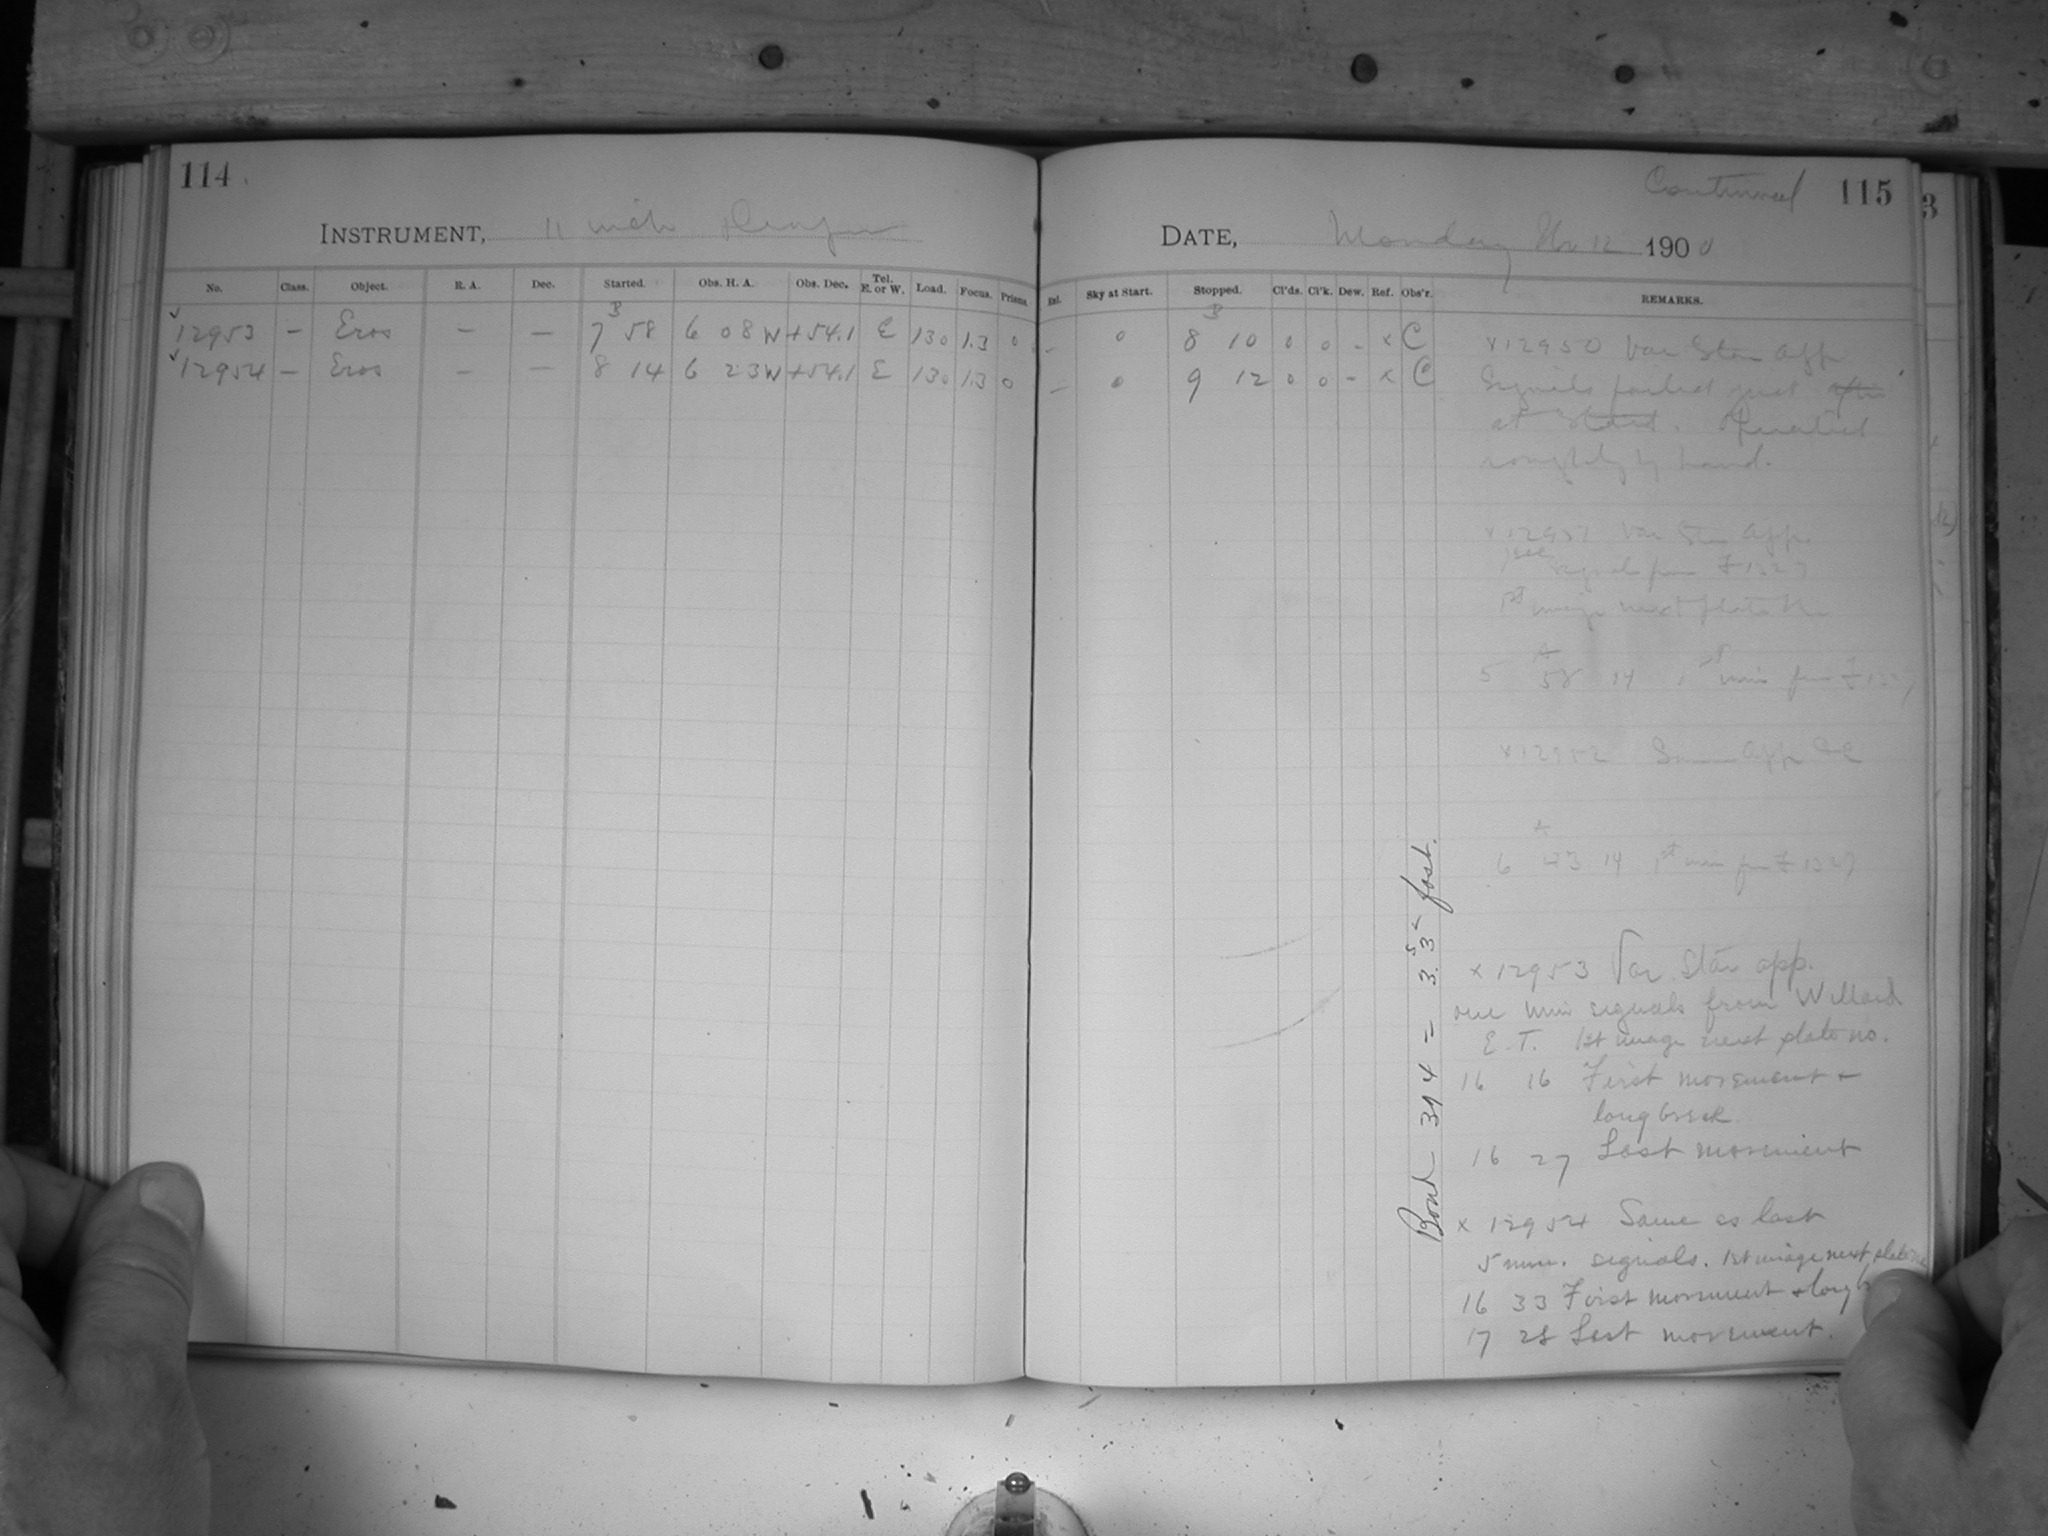 114
INSTRUMENT, 11 inch Draper
No. Class. Object. R. A. Dec. Started. Obs. H. A. Obs. Dec. Tel. E. or W. Load. Focus. Prisms.
B
12953 — Eros — — 7 58 6 08 W +54.1 E 130 1.3 0
12954 — Eros — — 8 14 6 23 W +54.1 E 130 1.3 0
Continued 115
DATE, Monday 12 1900
Exl. Sky at Start. Stopped. Cl'ds. Cl'k. Dew. Ref. Obs'r. REMARKS.
B
- 0 8 10 0 0 - x C
- 0 9 12 0 0 - x C
x 12950 Var Star app
Signals failed just after
at start. Operated
roughly by hand.
x 12951 Var Star app.
signals from
1st image next plate
A
5 58 14 1st min from
x 12952 Same app
A
6 43 14 1st min from
x 12953 Var. Star app.
one min signals from Willard
E. T. 1st image next plate no.
16 16 First movement +
long break
16 27 Last movement
x 12954 Same as last
5 min. signals. 1st image next plate no
16 33 First movement + long b
17 28 Last movement.
Bond 394 = 3.35 fast.